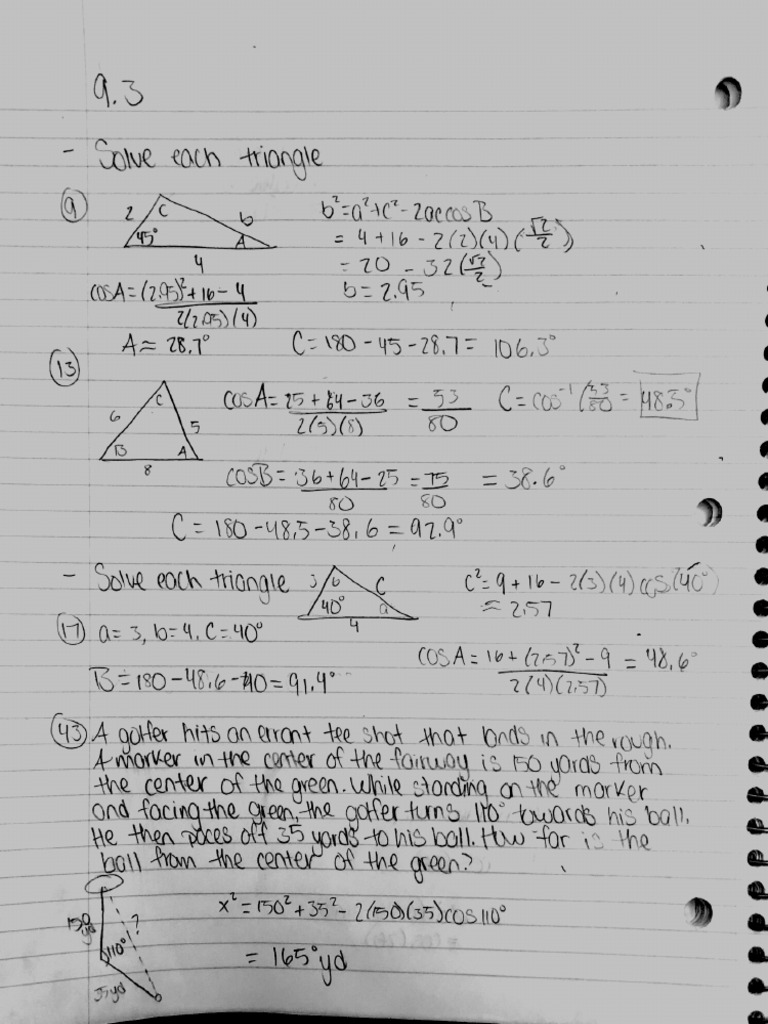 9.3
- Solve each triangle
9 2 C b 45° A 4
b²=a²+c²-2accosB
= 4+16-2(2)(4)(√2/2)
= 20 - 32(√2/2)
b=2.95
cosA=(2.95)²+16-4 / 2(2.95)(4)
A≈ 28.7° C=180-45-28.7= 106.3°
13 6 C 5 B A 8
cosA= 25+64-36 / 2(5)(8) = 53/80 C=cos⁻¹(53/80 = 48.5°
cosB= 36+64-25 / 80 = 75/80 = 38.6°
C=180-48.5-38.6=92.9°
- Solve each triangle 3 b C 40° a 4
c²=9+16-2(3)(4)cos(40°)
= 2.57
17 a=3, b=4, C=40°
cosA=16+(2.57)²-9 / 2(4)(2.57) = 48.6°
B=180-48.6-40=91.4°
43 A golfer hits an errant tee shot that lands in the rough.
A marker in the center of the fairway is 150 yards from
the center of the green. While standing on the marker
and facing the green, the golfer turns 110° towards his ball.
He then paces off 35 yards to his ball. How far is the
ball from the center of the green?
150 yd 110° ? 35yd
x²=150²+35²-2(150)(35)cos110°
= 165°yd